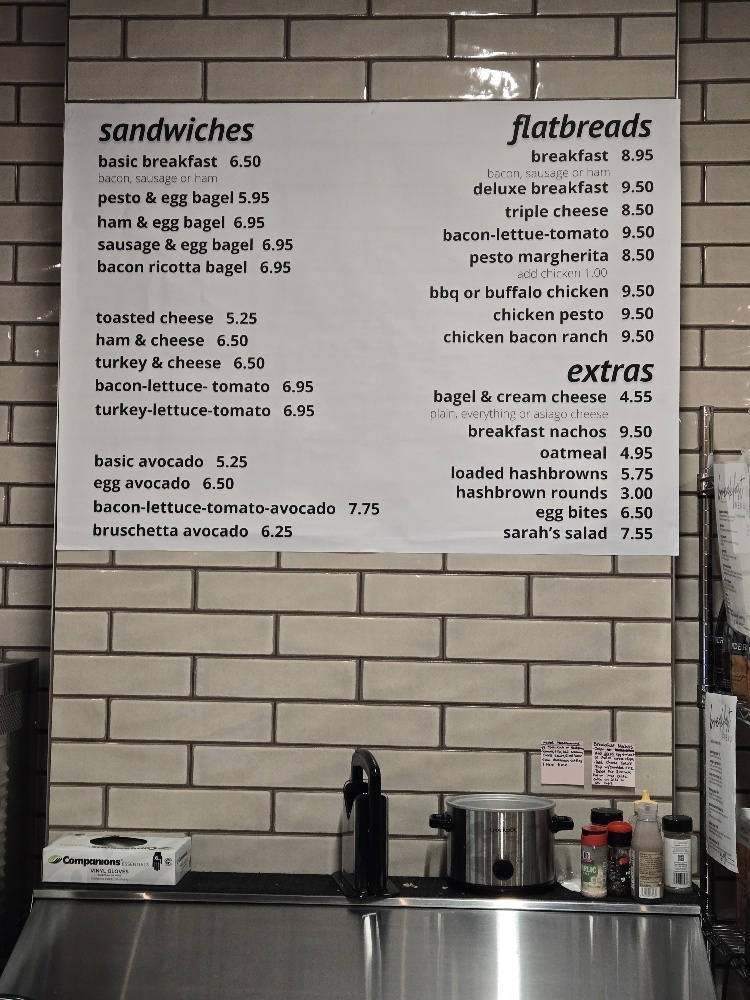 sandwiches
basic breakfast 6.50
bacon, sausage or ham
pesto & egg bagel 5.95
ham & egg bagel 6.95
sausage & egg bagel 6.95
bacon ricotta bagel 6.95
toasted cheese 5.25
ham & cheese 6.50
turkey & cheese 6.50
bacon-lettuce- tomato 6.95
turkey-lettuce-tomato 6.95
basic avocado 5.25
egg avocado 6.50
bacon-lettuce-tomato-avocado 7.75
bruschetta avocado 6.25
flatbreads
breakfast 8.95
bacon, sausage or ham
deluxe breakfast 9.50
triple cheese 8.50
bacon-lettue-tomato 9.50
pesto margherita 8.50
add chicken 1.00
bbq or buffalo chicken 9.50
chicken pesto 9.50
chicken bacon ranch 9.50
extras
bagel & cream cheese 4.55
plain, everything or asiago cheese
breakfast nachos 9.50
oatmeal 4.95
loaded hashbrowns 5.75
hashbrown rounds 3.00
egg bites 6.50
sarah's salad 7.55
Breakfast Nachos
Companions ESSENTIALS
VINYL GLOVES
breakfast
MENU
breakfast
MENU